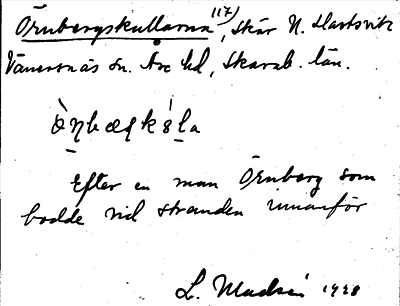 Örnbergskullarna 117), Skär N. Hartsvik
Vänersnäs sn. Åse hd, Skarab. län.
Efter en man Örnberg som
bodde vid stranden innanför
L. 1928